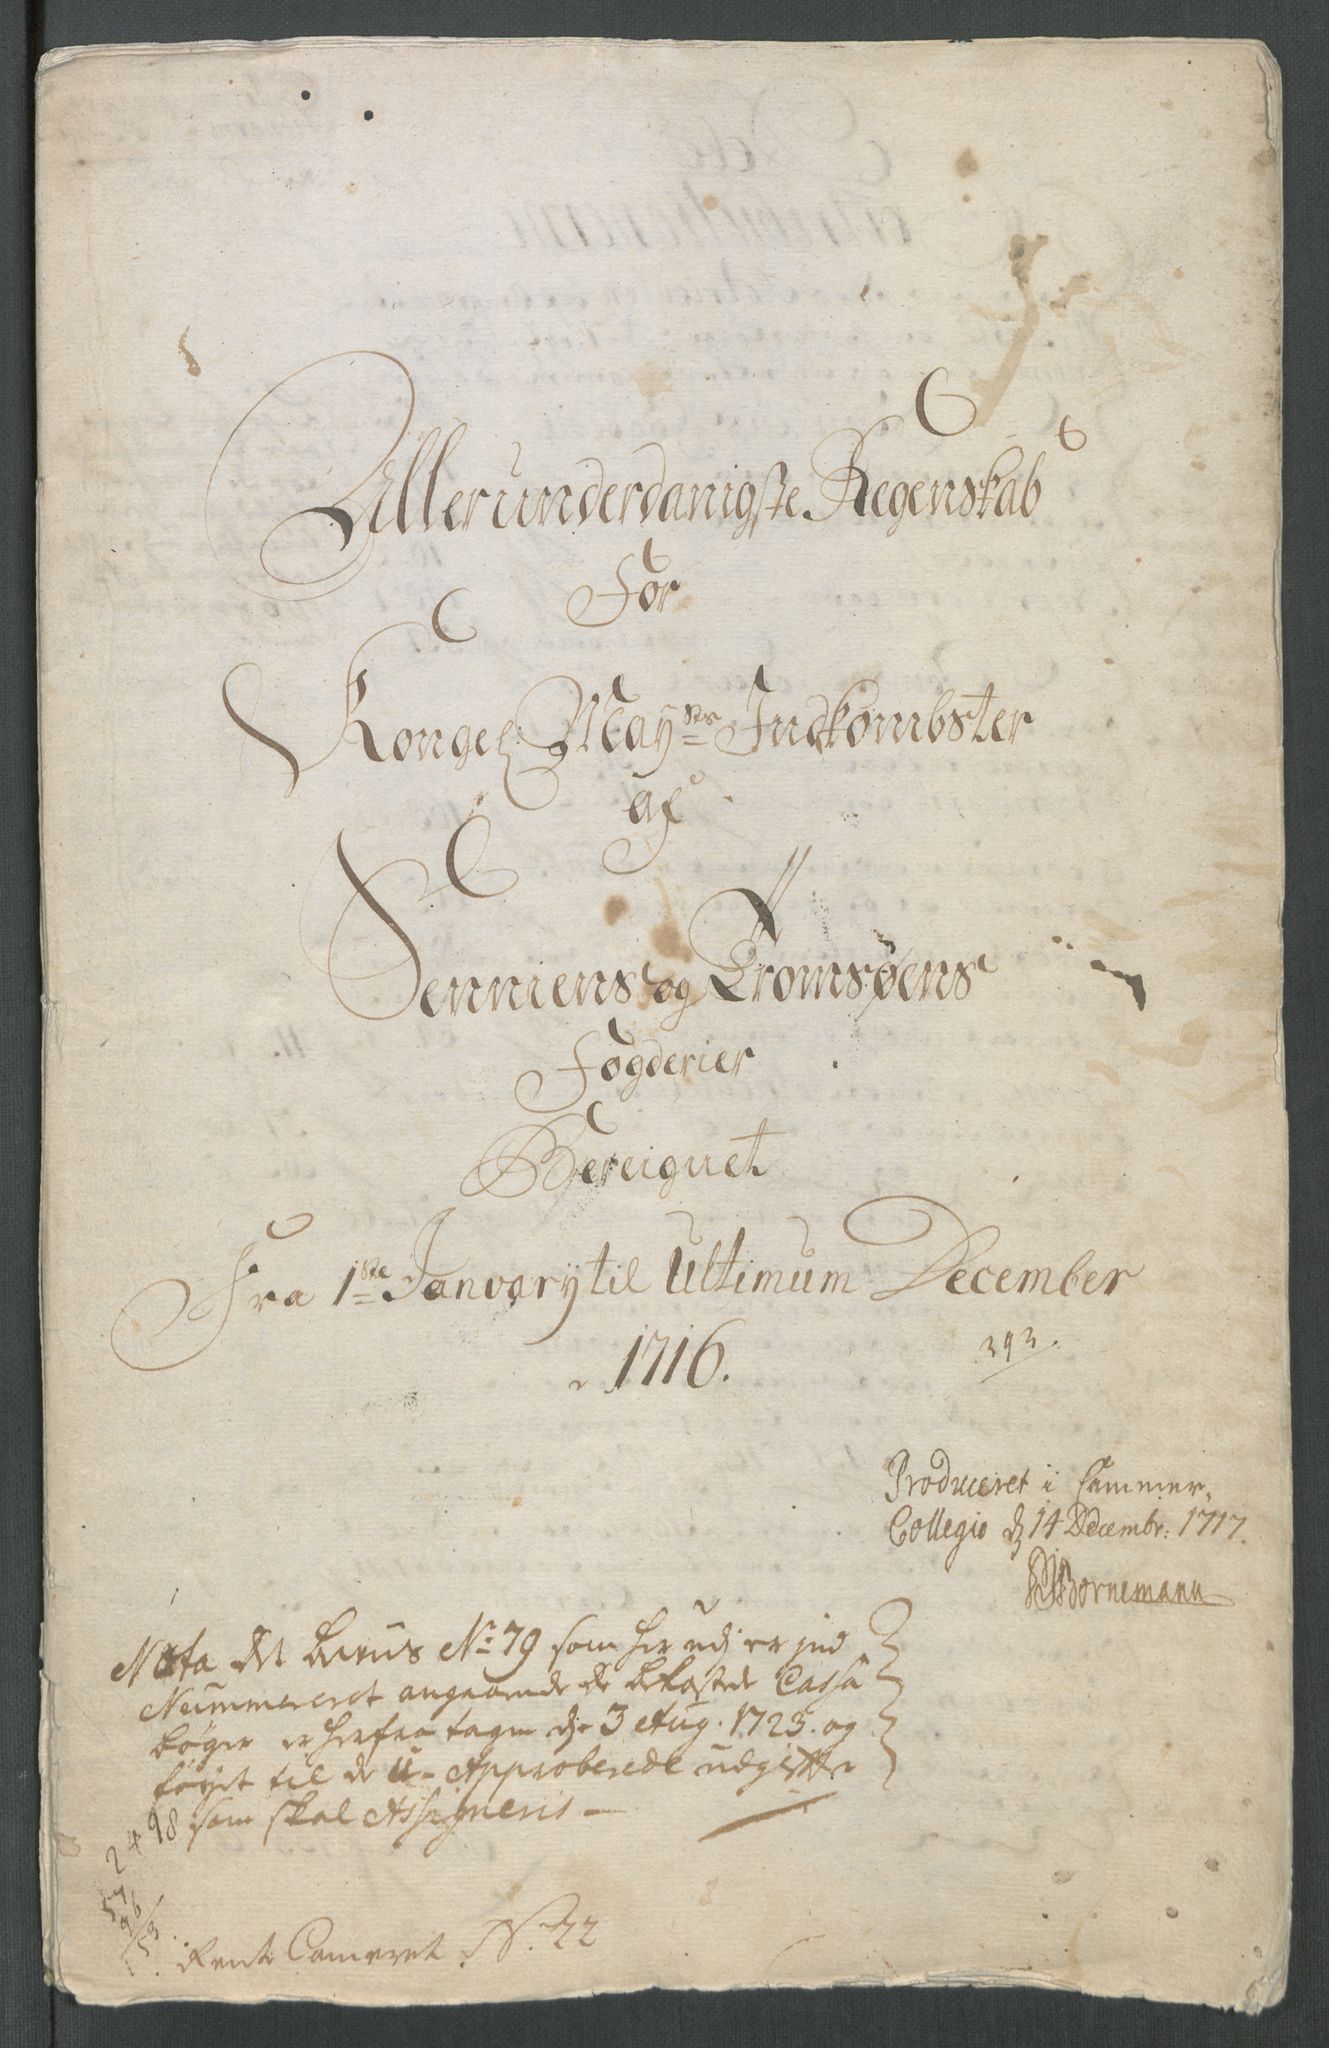 Allerunderdanigste Regenskab
For
Kongel: Mayts Indkombster
af
Senniens og Tromsøens
Fogderier
Bereignet
Fra 1ste Janvarij til Ultimum December
1716.
393
Produceret i Cammer-
Collegio d 14 Decembr: 1717.
Bornemann
Nota det beviis No: 79 som her udj er ind
Nummereret angaaende de bekostede Cassa
bøger er herfra tagen d. 3 Aug. 1723. og
føyet til de U-Approberede udgifter
som skal Assigneris
2498
57
96
153
Rente Cameret No: 22